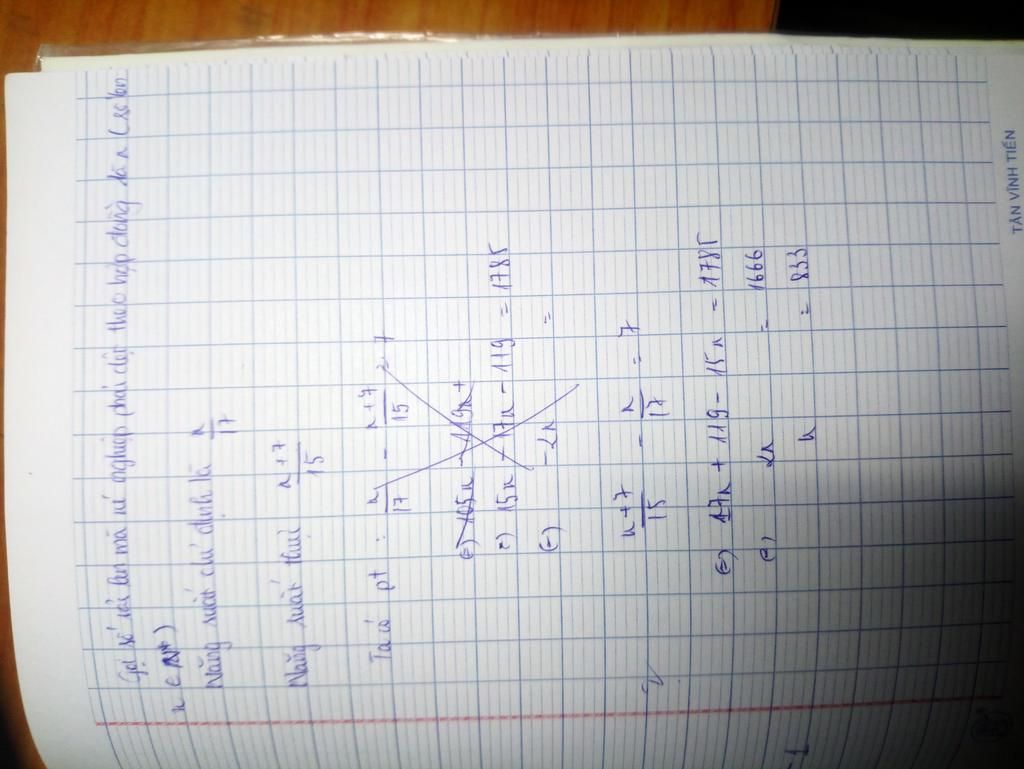 Gọi số túi len mà xí nghiệp phải dệt theo hợp đồng là x (số len
x ∈ N*)
Năng suất chỉ định là x/17
Năng suất thực x+7/15
Ta có pt : x/17 - x+7/15 = 7
(=) 105x - 119x +
(=) 15x - 17x - 119 = 1785
(=) -2x =
x+7/15 - x/17 = 7
(=) 17x + 119 - 15x = 1785
(=) 2x = 1666
x = 833
TÂN VĨNH TIẾN